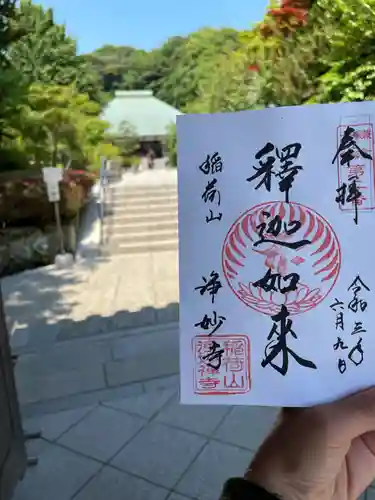 奉拝
令和三年六月九日
釋迦如来
稲荷山
浄妙寺
稲荷山
浄妙禅寺